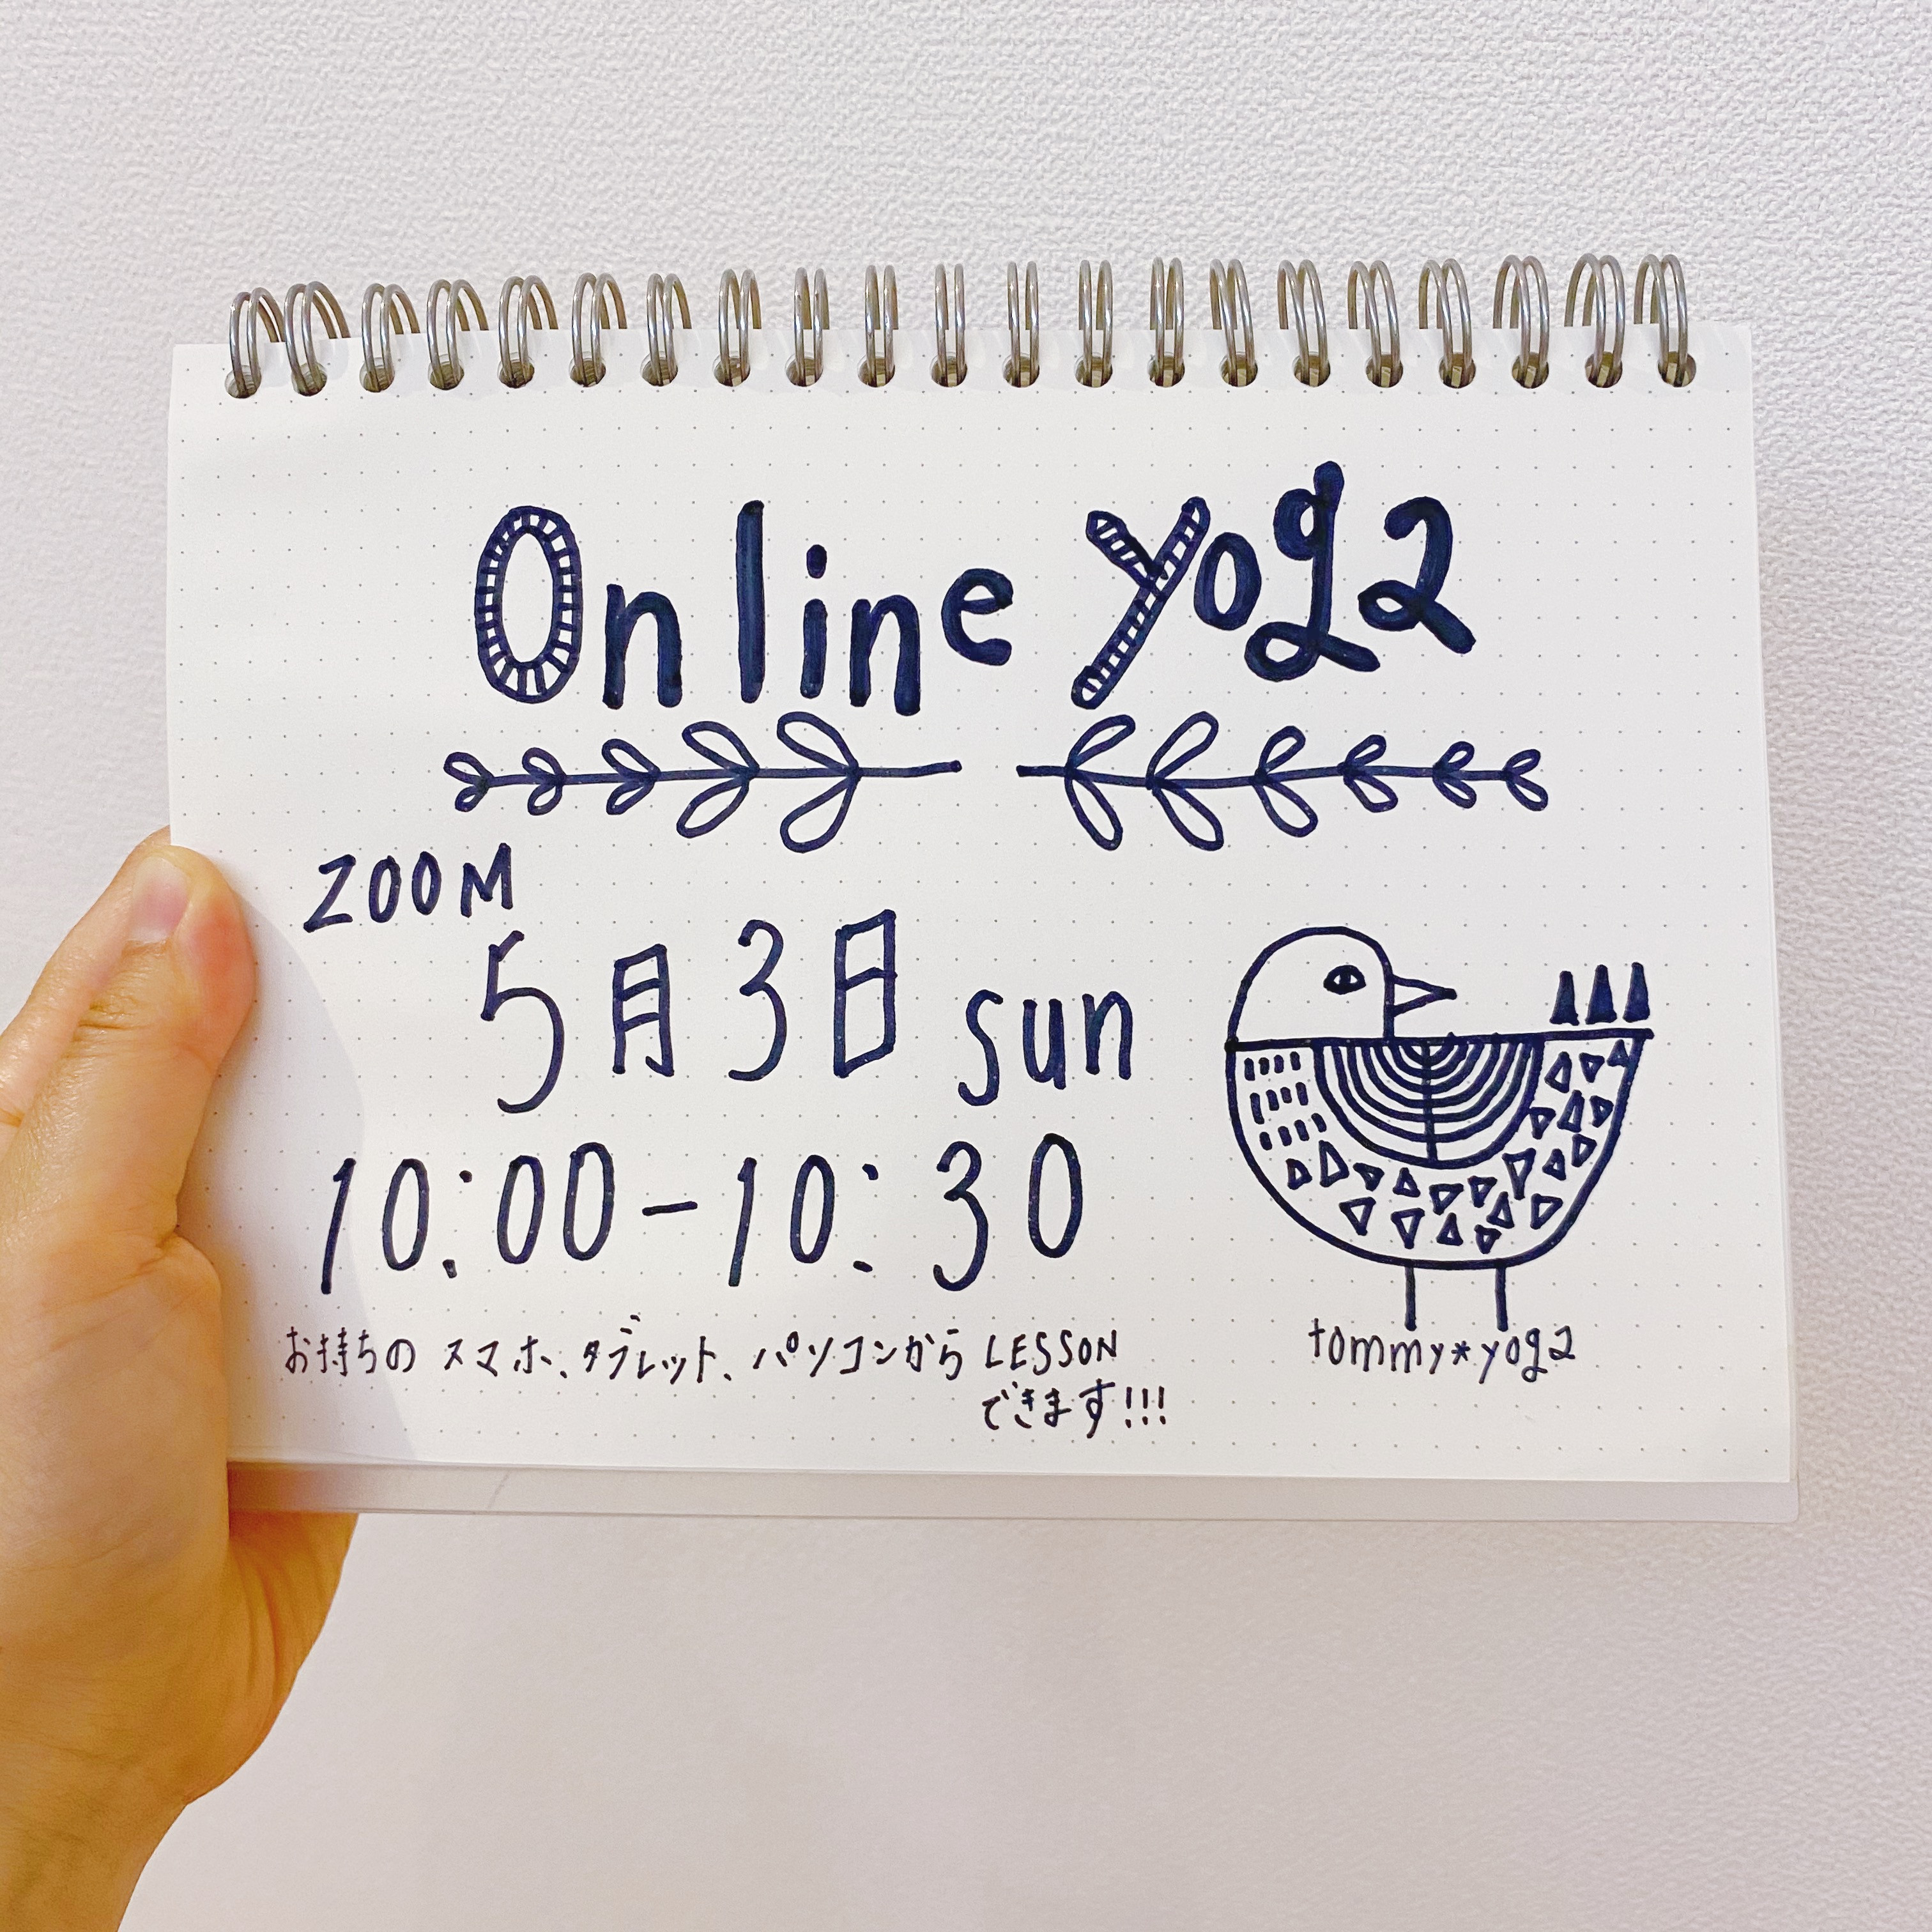 Online Yoga
ZOOM
5月3日 sun
10:00-10:30
お持ちの スマホ、タブレット、パソコンから LESSON
できます!!!
tommy*yoga